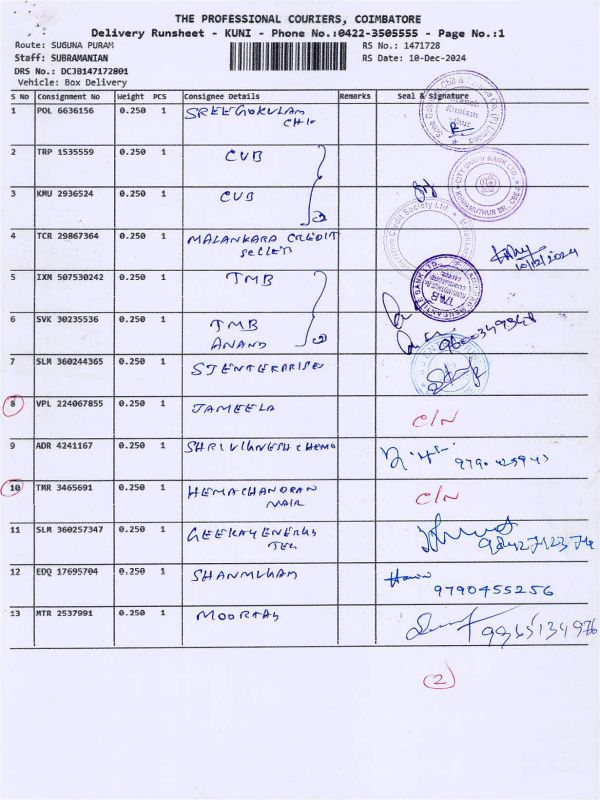 THE PROFESSIONAL COURIERS, COIMBATORE
Delivery Runsheet - KUNI - Phone No.:0422-3505555 - Page No.:1
Route: SUGUNA PURAM RS No.: 1471728
Staff: SUBRAMANIAN RS Date: 10-Dec-2024
DRS No.: DCJB147172801
Vehicle: Box Delivery
S No Consignment No Weight PCS Consignee Details Remarks Seal & Signature
1 POL 6636156 0.250 1 SREEGOKULAM
CHIT
2 TRP 1535559 0.250 1 CUB
3 KMU 2936524 0.250 1 CUB
4 TCR 29867364 0.250 1 MALANKARA CREDIT
10/12/2024
5 IXM 507530242 0.250 1 TMB
6 SVK 30235536 0.250 1 TMB
ANAND
7 SLM 360244365 0.250 1 SJ ENTERPRISE
8 VPL 224067855 0.250 1 JAMEELA C/N
9 ADR 4241167 0.250 1 SHRIVIGNESH CHEMO
10 TMR 3465691 0.250 1 HEMACHANDRAN C/N
NAIR
11 SLM 360257347 0.250 1 GEEKAY ENERGY
12 EDQ 17695704 0.250 1 SHANMUGAM 9790455256
13 MTR 2537991 0.250 1 MOORTHY 9965134976
(2)